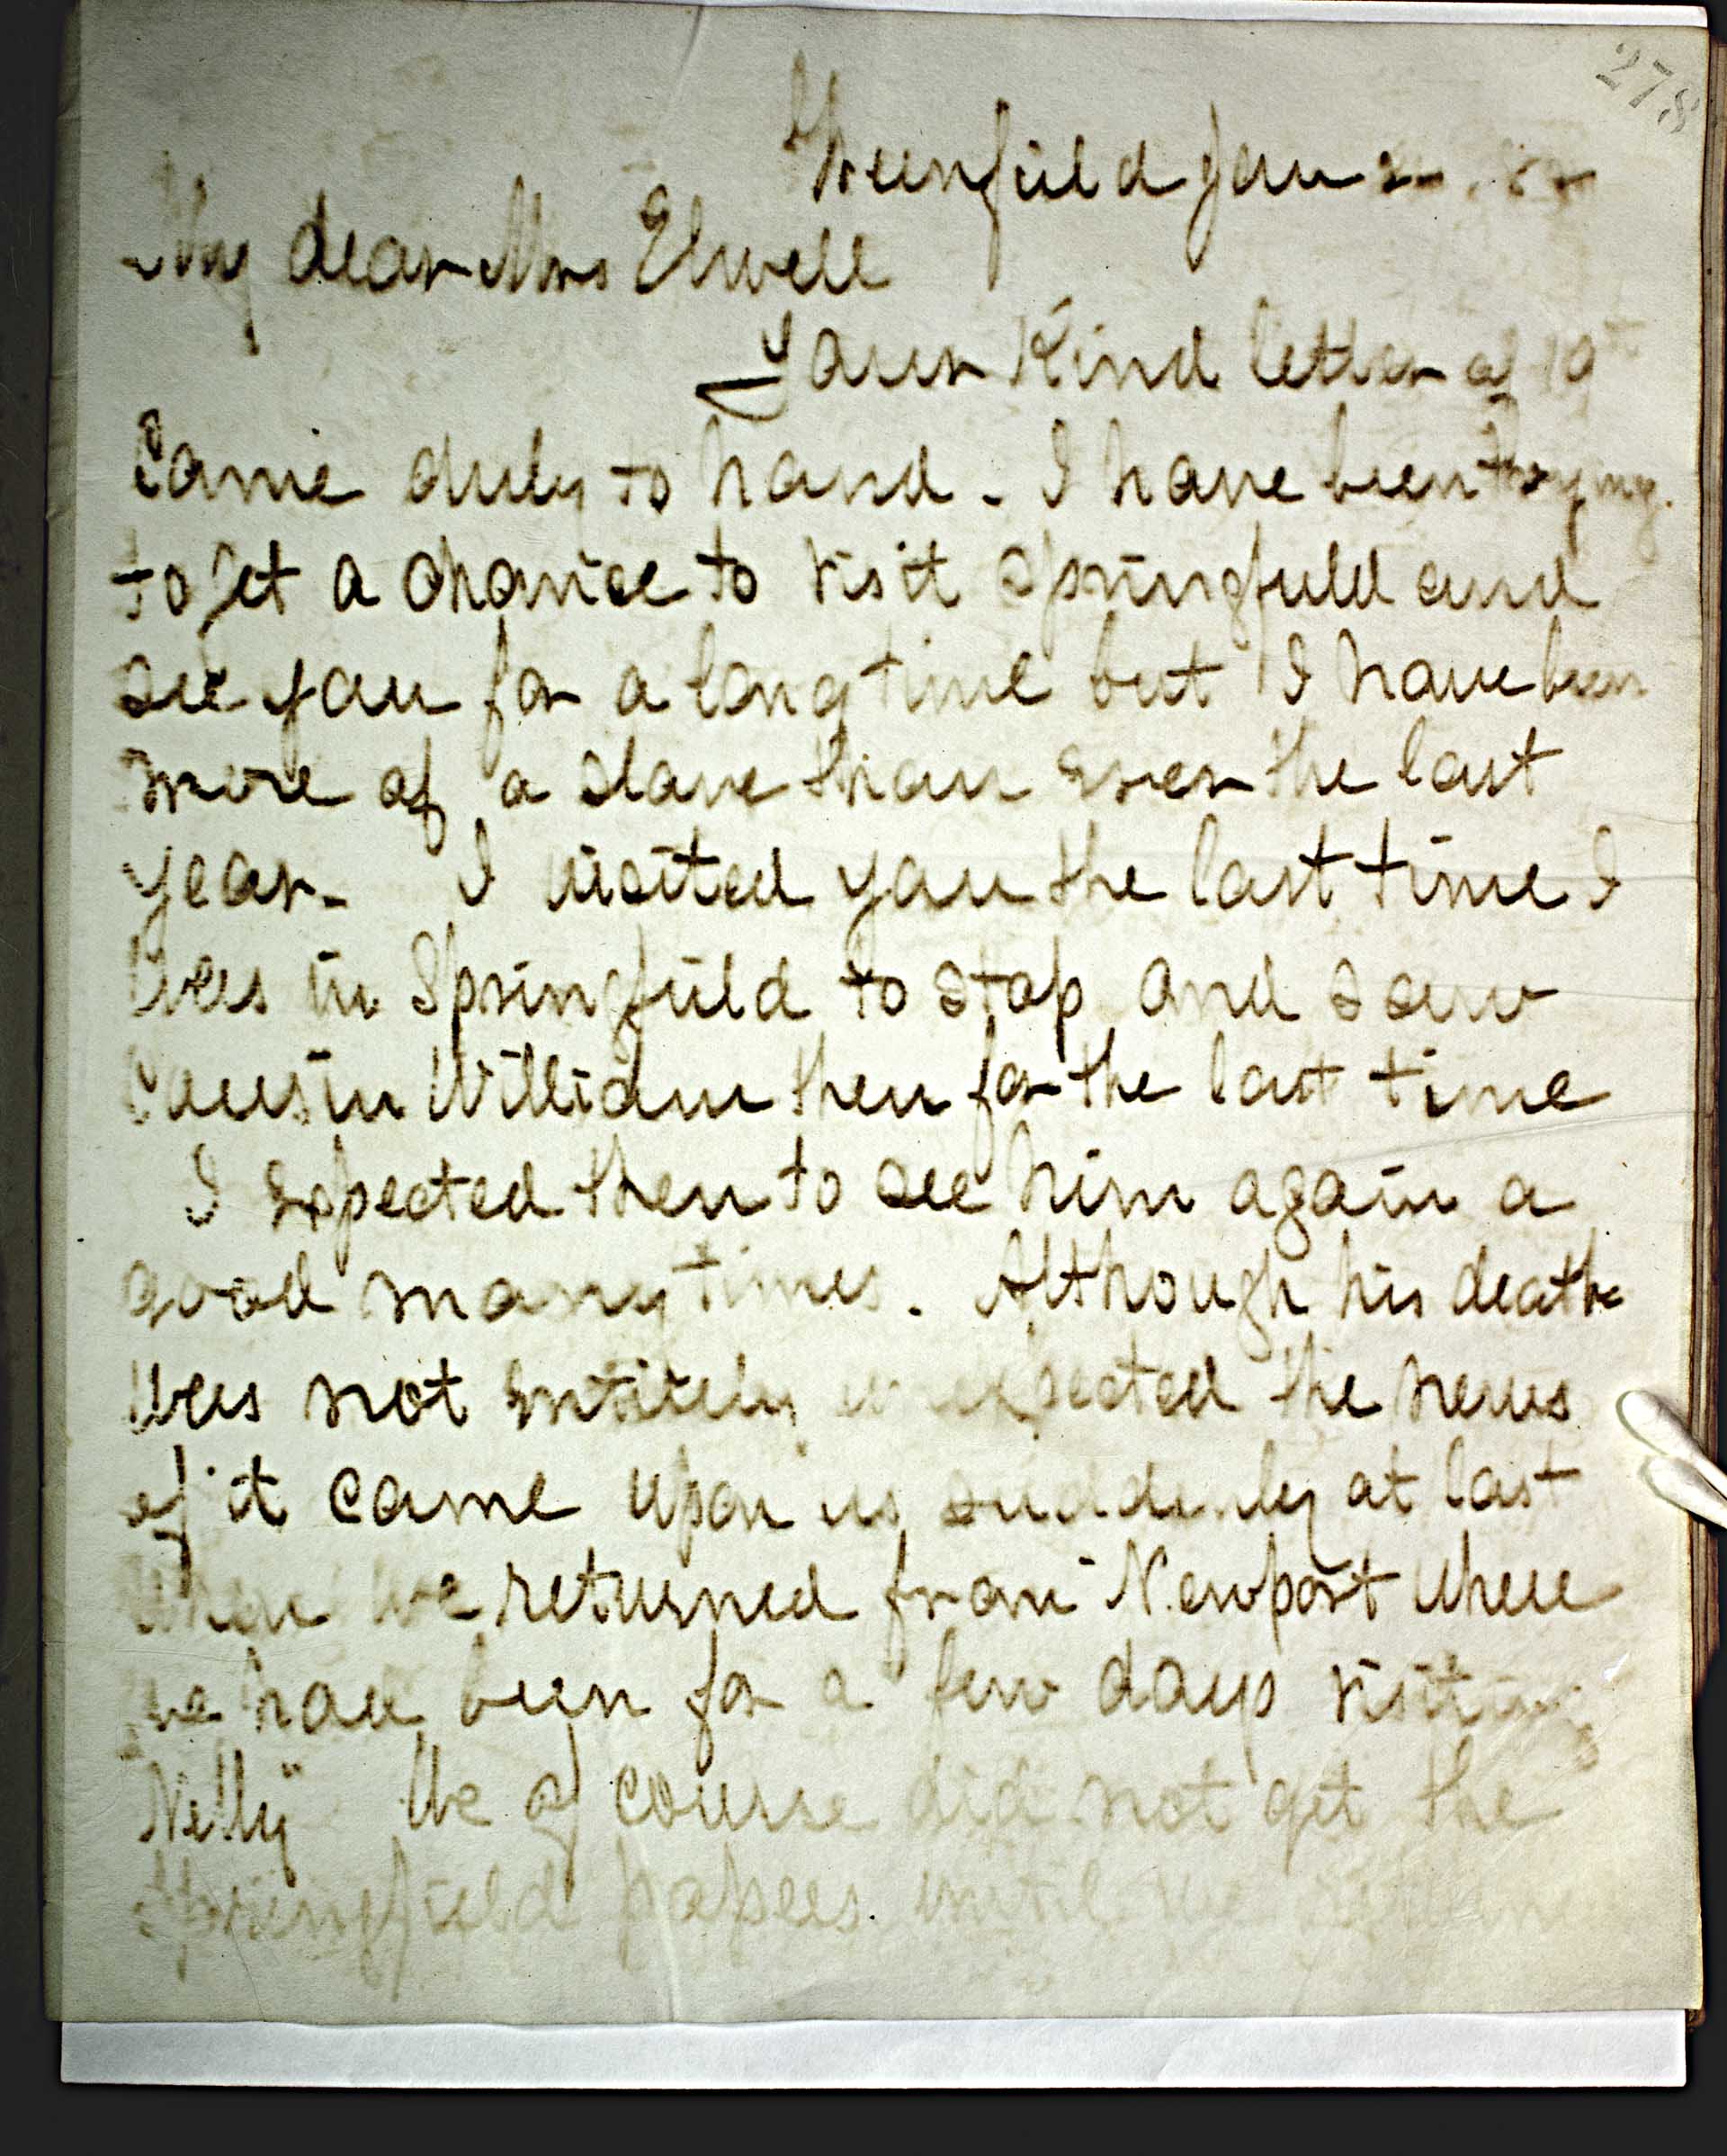 278
Greenfield Jan
My dear Mrs Elwell
Your kind letter of 19th
Came duly to hand. I have been trying
to get a chance to visit Springfield and
see you for a long time but I have been
more of a slave than ever the last
year. I visited you the last time I
was in Springfield to stop and saw
Cousin William then for the last time
I expected then to see him again a
good many times. Although his death
was not entirely unexpected the news
of it came upon us suddenly at last
when we returned from Newport where
we had been for a few days visiting
Nelly We of course did not get the
Springfield papers until we